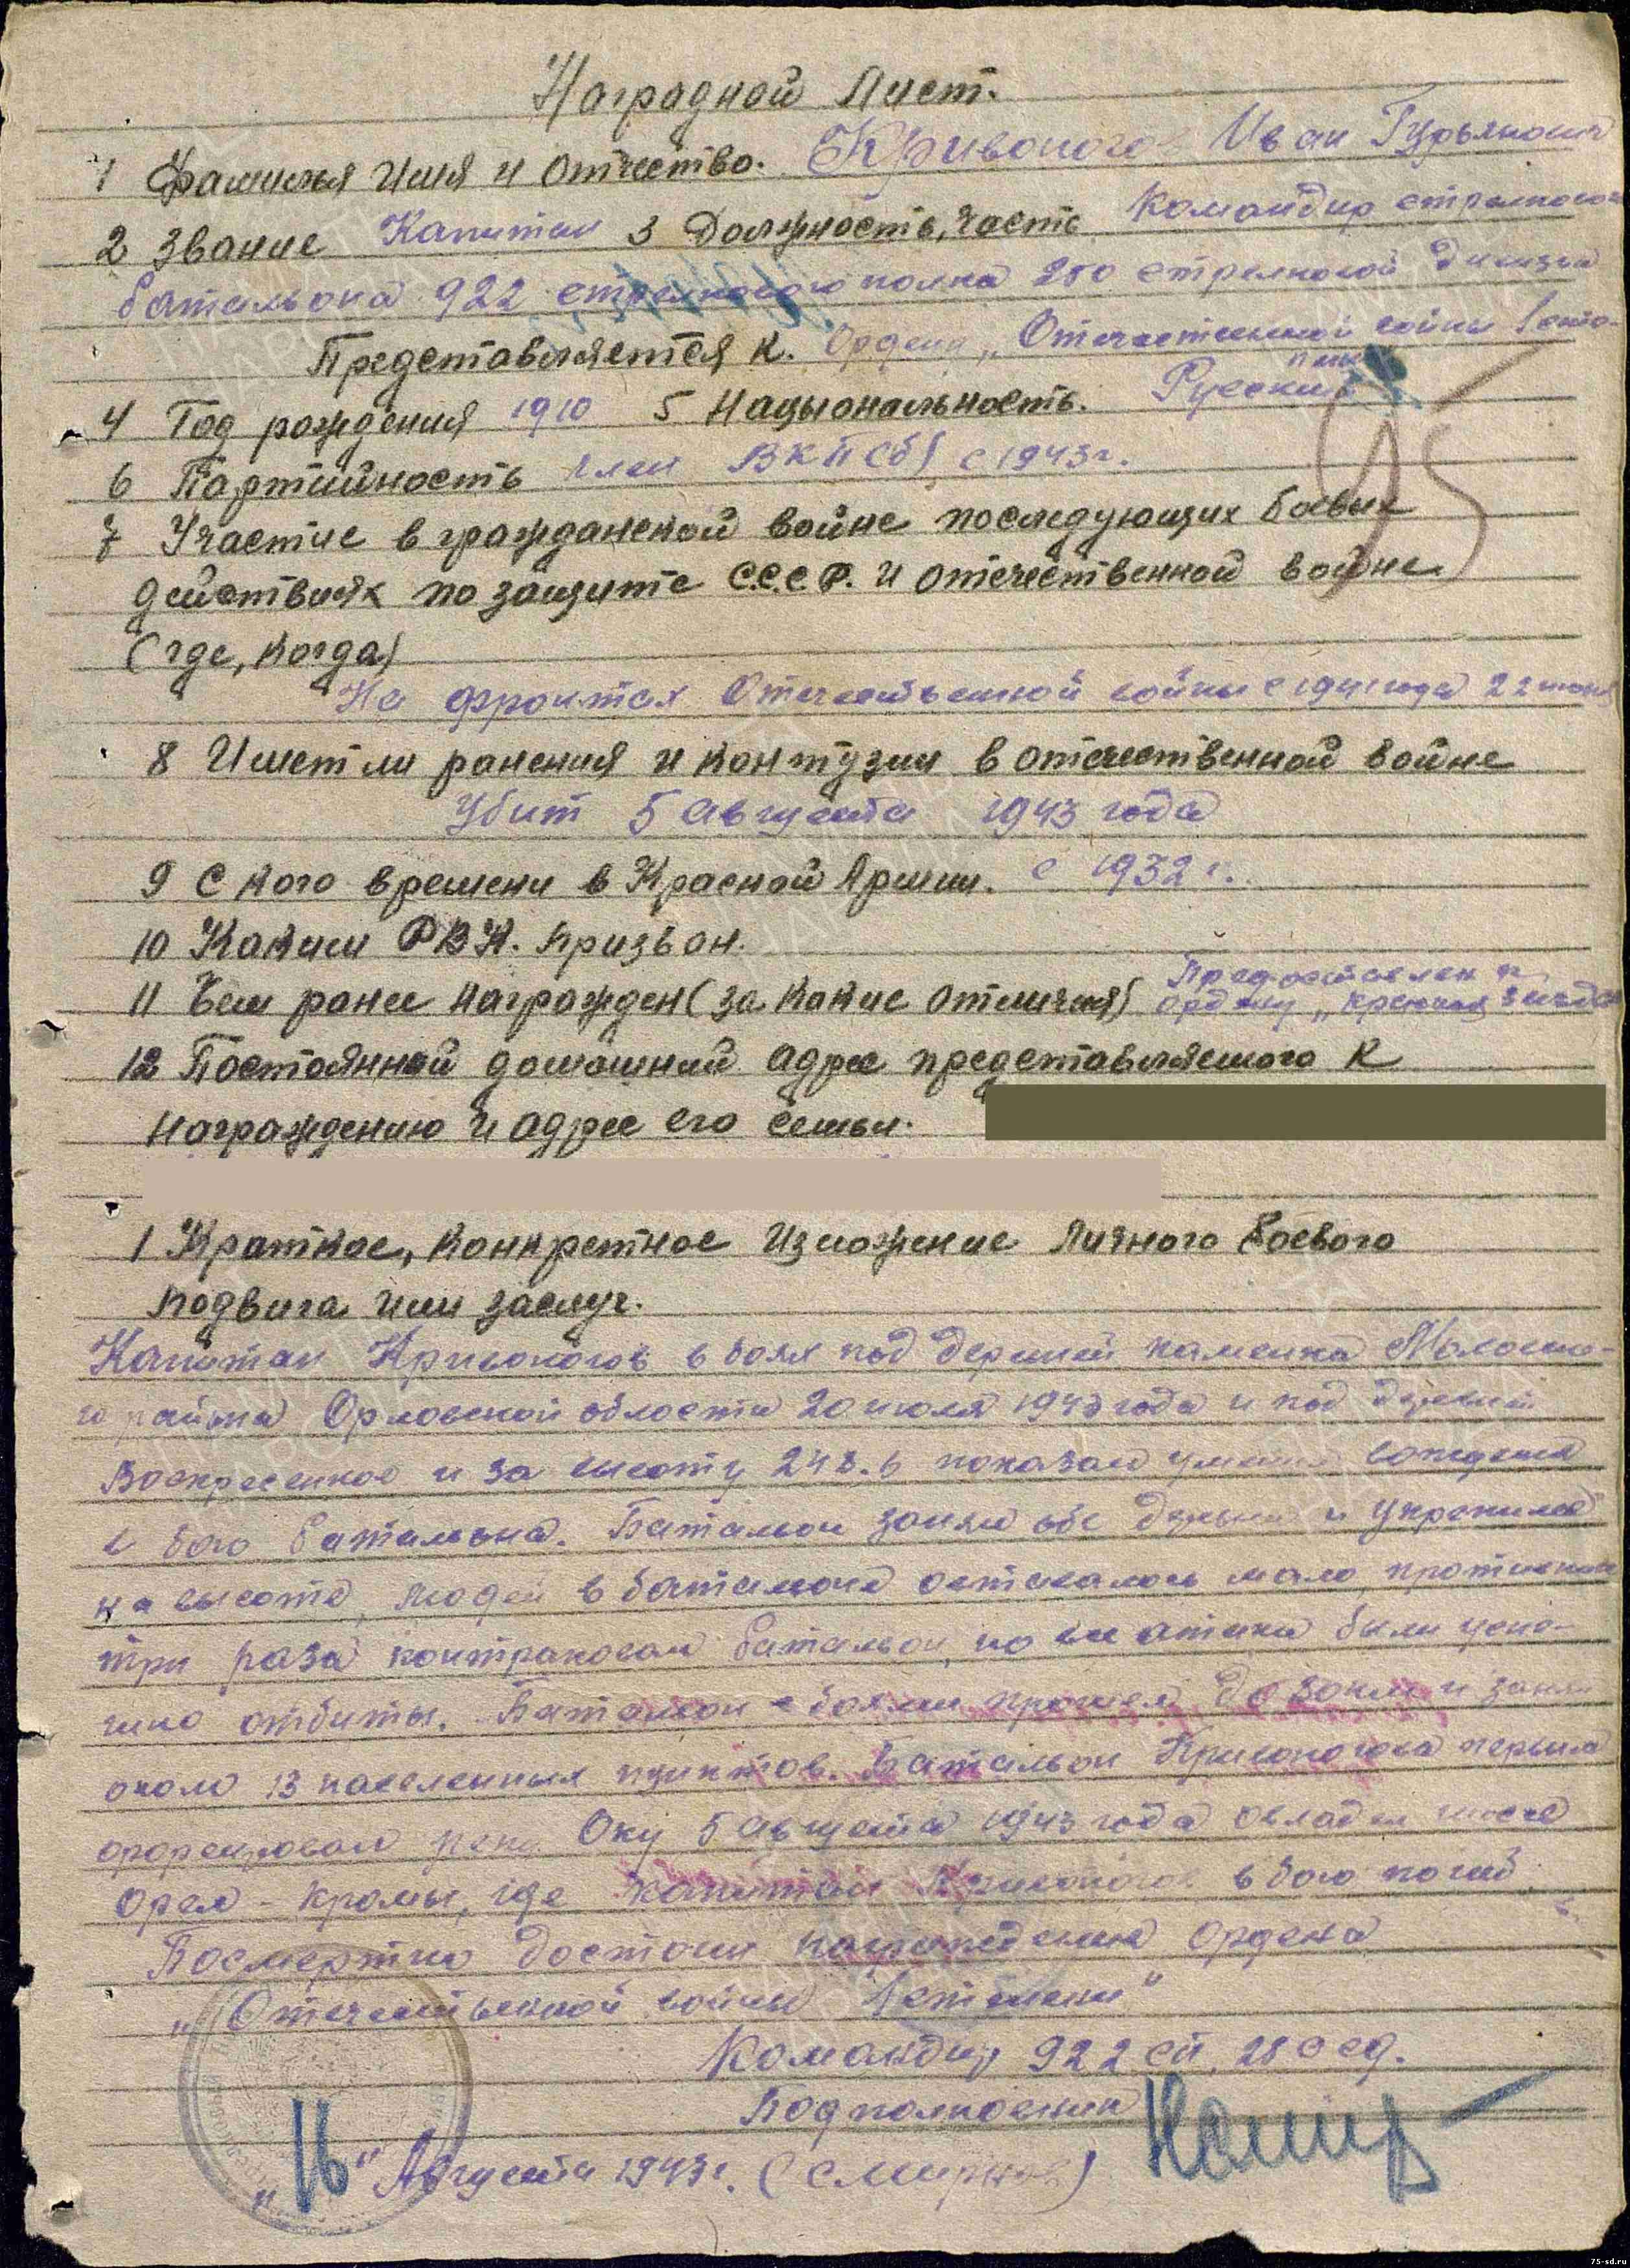 Наградной Лист.
1 Фамилья Имя и Отчество. Кривоногов Иван Гурьянович
2 Звание Капитан 3 Должность, часть Командир стрелкового
батальона 922 стрелкового полка 250 стрелковой дивизии
Представляется к. Ордену „Отечественной войны I сте-
пени
4 Год рождения 1910 5 Национальность. Русский
6 Партийность член ВКП(б) с 1943 г.
7 Участие в гражданской войне последующих боевых
действиях по защите С.С.С.Р. и отечественной войне
(где, когда)
На фронтах Отечественной войны с 1941 года 22 июня
8 Имет ли ранения и контузии в отечественной войне
Убит 5 августа 1943 года
9 С кого времени в Красной Армии. с 1932 г.
10 Каким РВК. призван.
11 Чем ранее награжден (за какие отличия) Предоставлен к
ордену „Красная звезда
12 Постоянной домошний адрес представляемого к
награждению и адрес его семьи.
1 Краткое, конкретное изложение личного боевого
подвига или заслуг.
Капитан Кривоногов в боях под деревней Каменка
района Орловской области 20 июля 1943 года и под деревней
Воскресенкое и за высоту 248.6 показал умение вождения
в бою батальона. Батальон занял обе деревни и укрепился
на высоте, людей в батальоне оставалось мало, противник
три раза контраковал батальон, но все атаки были успе-
шно отбиты. Батальон с боями прошел до Зоки и занял
около 13 населенных пунктов. Батальон Кривоногова первым
форсировал реку Оку 5 августа 1943 года овладел шоссе
Орел - Кромы, где капитан Кривоногов в бою погиб.
Посмертно достоин награждения Ордена
„Отечественной войны I степени"
Командир 922 сп. 250 сд.
Подполковник
„16" Августа 1943 г. (Смирнов)
15
75-sd.ru